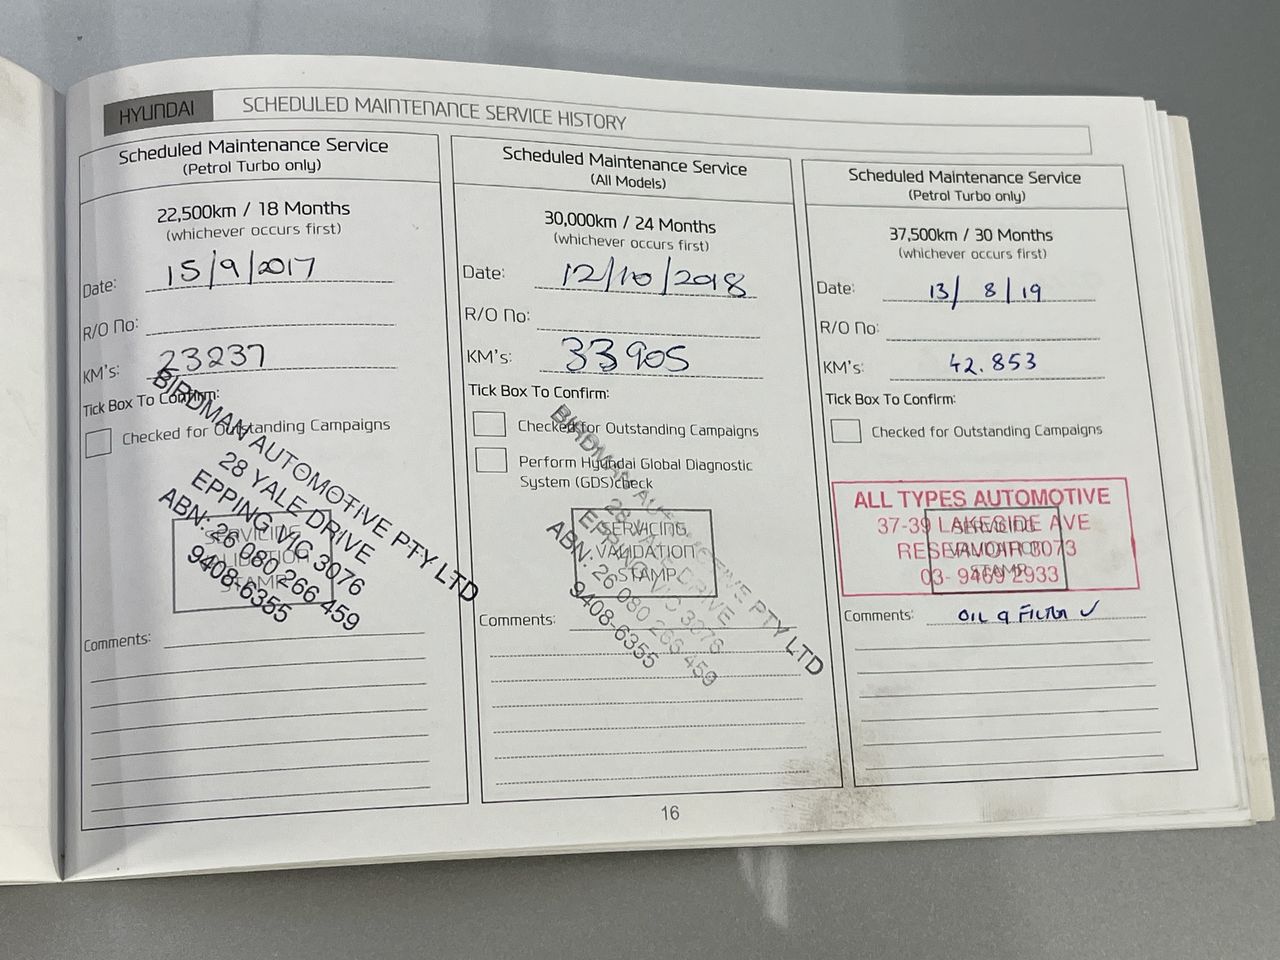 HYUNDAI SCHEDULED MAINTENANCE SERVICE HISTORY
Scheduled Maintenance Service
(Petrol Turbo only)
22,500km / 18 Months
(whichever occurs first)
Date: 15/9/2017
R/O No:
KM's: 23237
Tick Box To Confirm:
Checked for Outstanding Campaigns
BIRDMAN AUTOMOTIVE PTY LTD
28 YALE DRIVE
EPPING VIC 3076
ABN: 26 080 266 459
9408-6355
SERVICING
VALIDATION
STAMP
Comments:
Scheduled Maintenance Service
(All Models)
30,000km / 24 Months
(whichever occurs first)
Date: 12/10/2018
R/O No:
KM's: 33905
Tick Box To Confirm:
Checked for Outstanding Campaigns
Perform Hyundai Global Diagnostic
System (GDS)check
BIRDMAN AUTOMOTIVE PTY LTD
28 YALE DRIVE
EPPING VIC 3076
ABN: 26 080 266 459
9408-6355
SERVICING
VALIDATION
STAMP
Comments:
Scheduled Maintenance Service
(Petrol Turbo only)
37,500km / 30 Months
(whichever occurs first)
Date: 13/ 8/19
R/O No:
KM's: 42.853
Tick Box To Confirm:
Checked for Outstanding Campaigns
ALL TYPES AUTOMOTIVE
37-39 LAKESIDE AVE
RESERVOIR 3073
03- 9469 2933
SERVICING
VALIDATION
STAMP
Comments: OIL & FILTER ✓
16